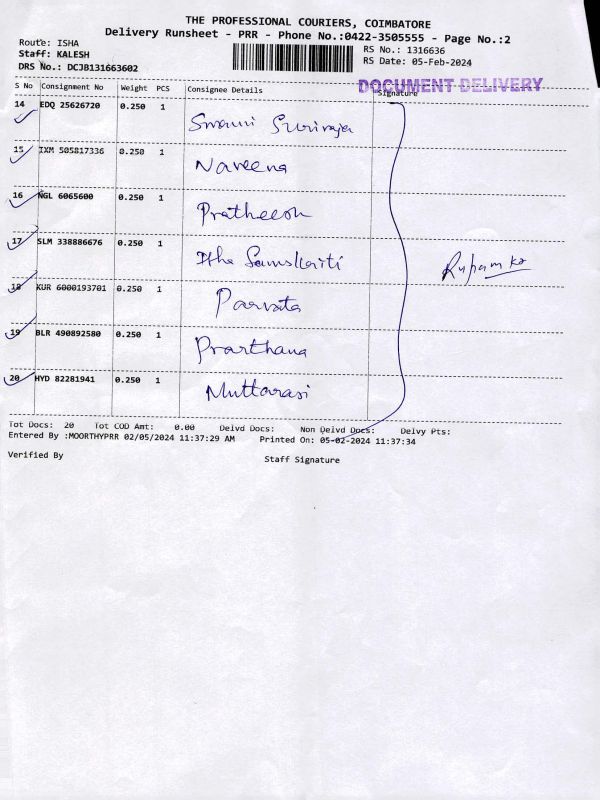 THE PROFESSIONAL COURIERS, COIMBATORE
Delivery Runsheet - PRR - Phone No.:0422-3505555 - Page No.:2
Route: ISHA
Staff: KALESH
DRS No.: DCJB131663602
RS No.: 1316636
RS Date: 05-Feb-2024
DOCUMENT DELIVERY
S No Consignment No Weight PCS Consignee Details Signature
14 EDQ 25626720 0.250 1
Swami
15 IXM 505817336 0.250 1
Naveena
16 NGL 6065600 0.250 1
Pratheesh
17 SLM 338886676 0.250 1
Isha Samskriti
18 KUR 6000193701 0.250 1
Parvata
19 BLR 490892580 0.250 1
Prarthana
20 HYD 82281941 0.250 1
Muttarasi
Tot Docs: 20 Tot COD Amt: 0.00 Delvd Docs: Non Delvd Docs: Delvy Pts:
Entered By :MOORTHYPRR 02/05/2024 11:37:29 AM Printed On: 05-02-2024 11:37:34
Verified By Staff Signature